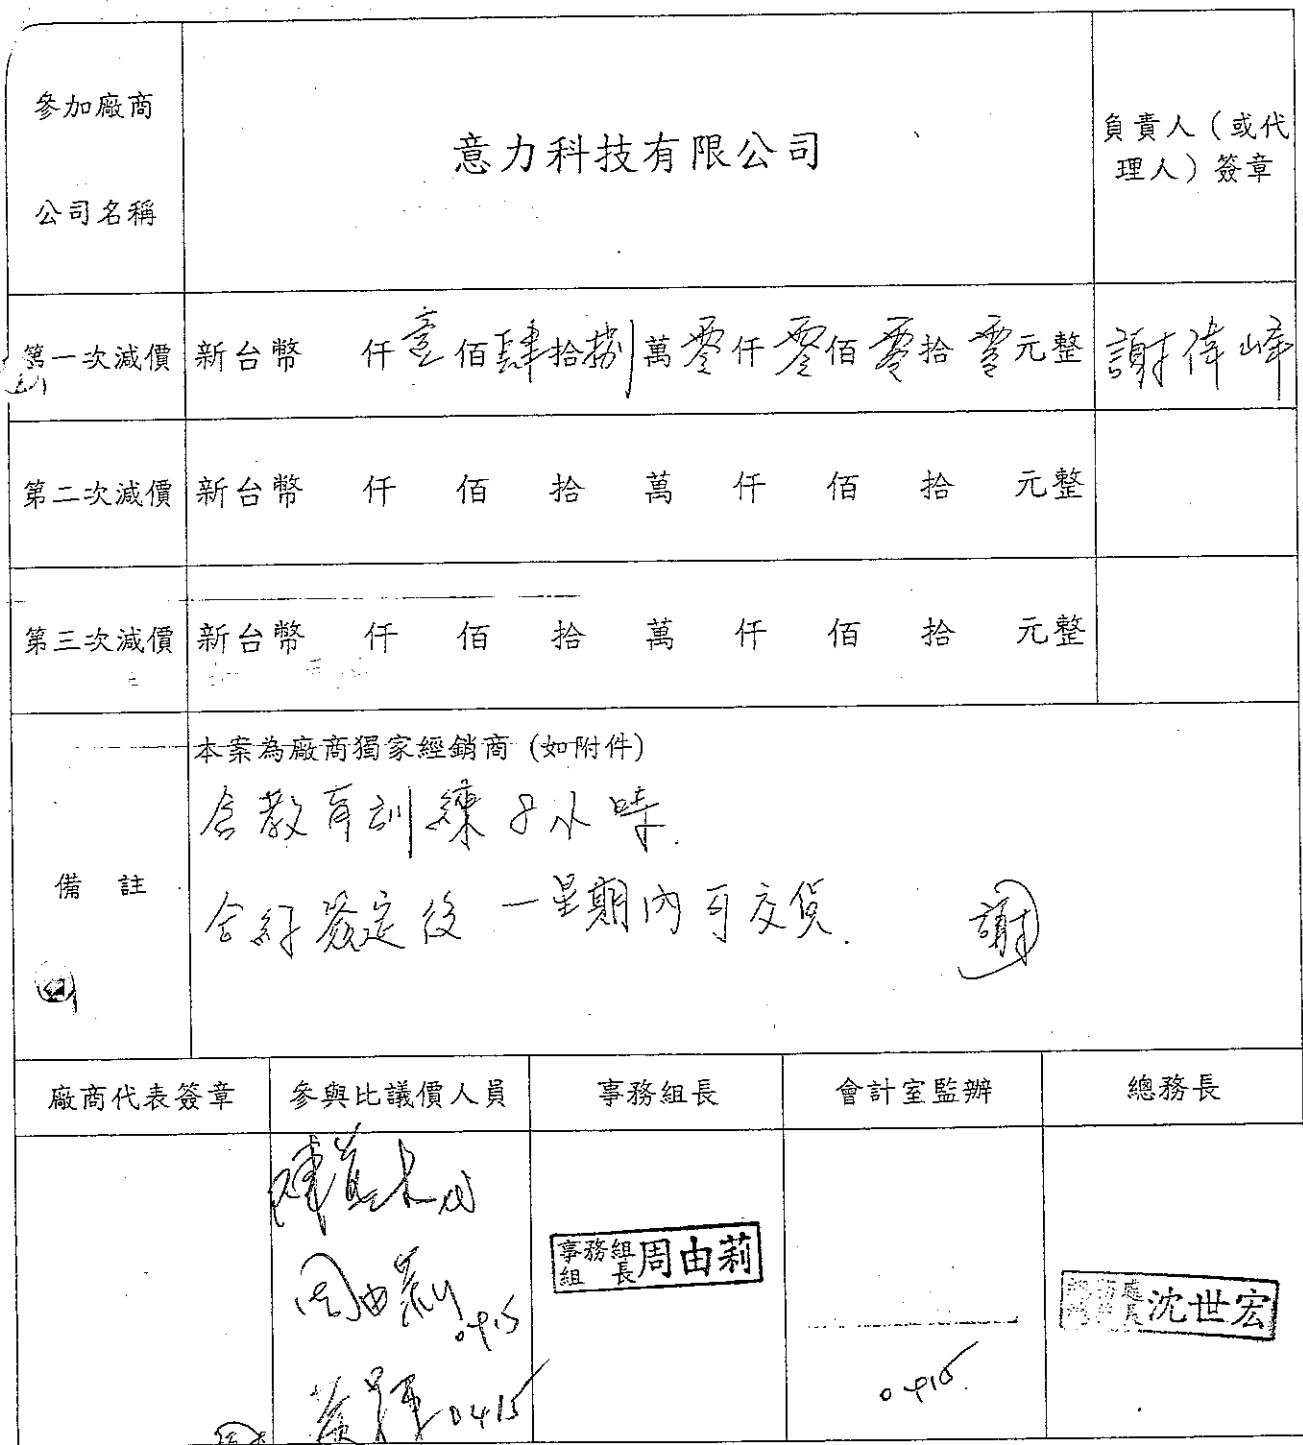 參加廠商
公司名稱
意力科技有限公司
負責人（或代
理人）簽章
第一次減價 新台幣 仟壹佰肆拾捌萬零仟零佰零拾零元整 謝偉峰
第二次減價 新台幣 仟 佰 拾 萬 仟 佰 拾 元整
第三次減價 新台幣 仟 佰 拾 萬 仟 佰 拾 元整
備 註
本案為廠商獨家經銷商 (如附件)
含教育訓練8小時.
合約簽定後一星期內可交貨. 謝
廠商代表簽章 參與比議價人員 事務組長 會計室監辦 總務長
周由莉
0415
0415
事務組
組長 周由莉
0415
沈世宏